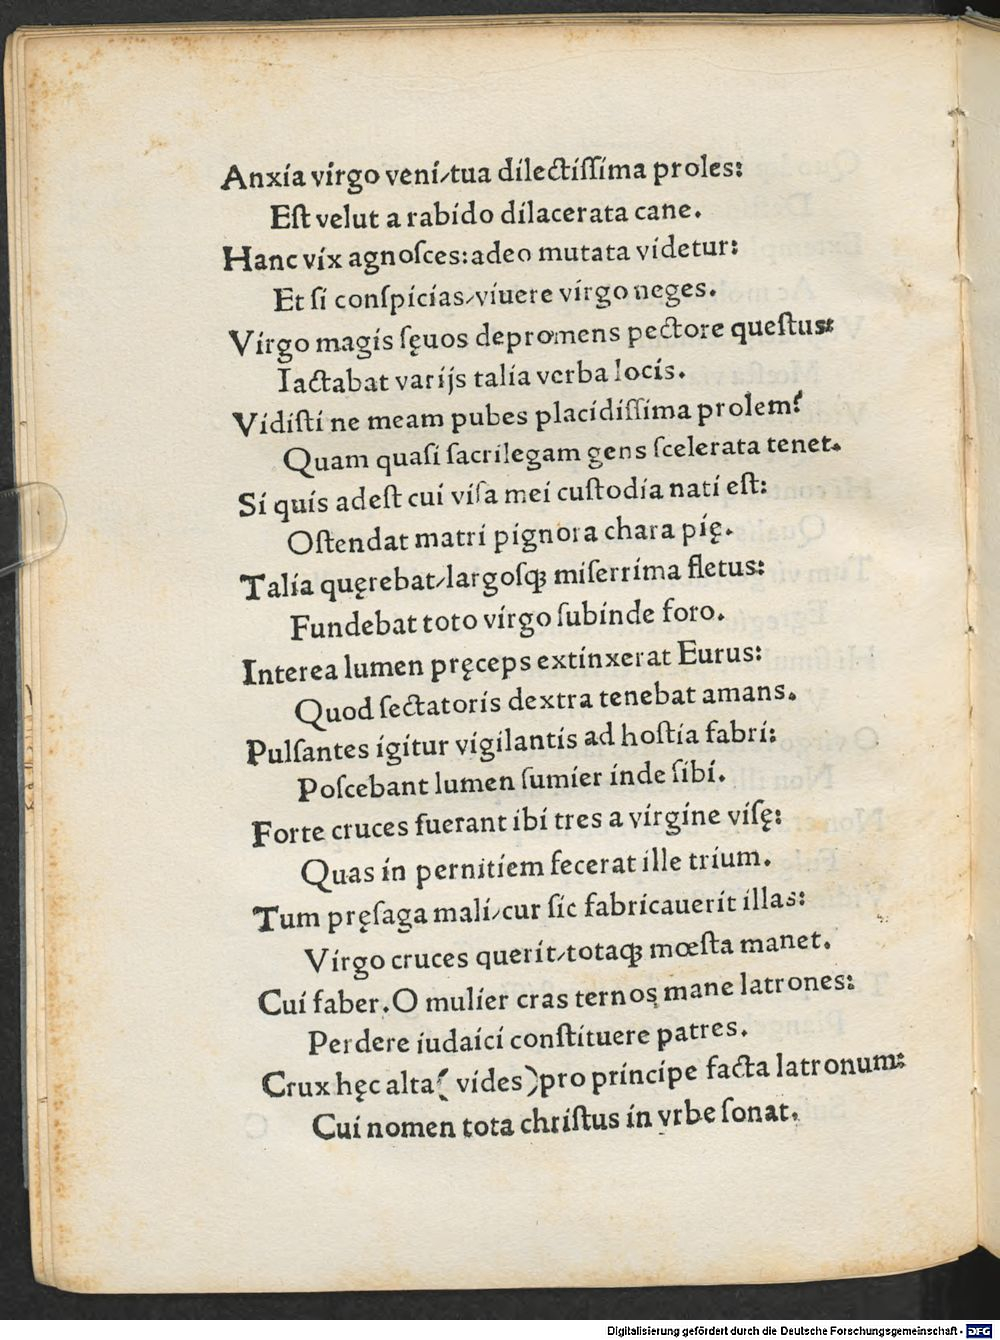 Anxia virgo veni/tua dilectiſſima proles:
Eſt velut a rabido dilacerata cane.
Hanc vix agnoſces:adeo mutata videtur:
Et ſi conſpicias/viuere virgo neges.
Virgo magis ſęuos depromens pectore queſtus:
Iactabat varijs talia verba locis.
Vidiſti ne meam pubes placidiſſima prolem?
Quam quaſi ſacrilegam gens ſcelerata tenet.
Si quis adeſt cui viſa mei cuſtodia nati eſt:
Oſtendat matri pignora chara pię.
Talia quęrebat/largoſqꝫ miſerrima fletus:
Fundebat toto virgo ſubinde foro.
Interea lumen pręceps extinxerat Eurus:
Quod ſectatoris dextra tenebat amans.
Pulſantes igitur vigilantis ad hoſtia fabri:
Poſcebant lumen ſumier inde ſibi.
Forte cruces fuerant ibi tres a virgine viſę:
Quas in pernitiem fecerat ille trium.
Tum pręſaga mali/cur ſic fabricauerit illas:
Virgo cruces querit/totaqꝫ mœſta manet.
Cui faber.O mulier cras ternos mane latrones:
Perdere iudaici conſtituere patres.
Crux hęc alta( vides)pro principe facta latronum:
Cui nomen tota chriſtus in vrbe ſonat.
Digitalisierung gefördert durch die Deutsche Forschungsgemeinschaft - DFG